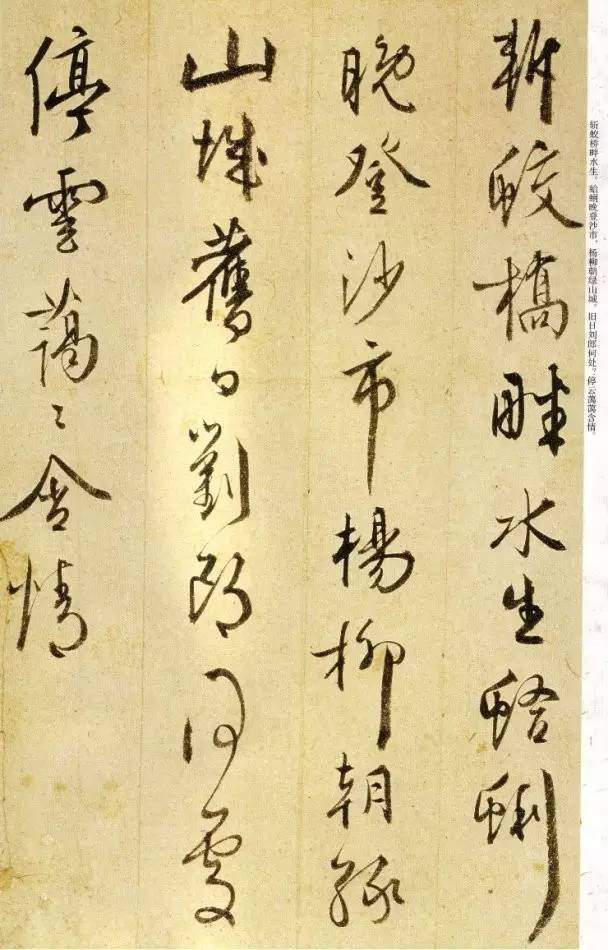 斩蛟桥畔水生。蛤蜊晚登沙市,杨柳朝绿山城。旧日刘郎何处?停云蔼蔼含情。
斬蛟橋畔水生蛤蜊
晚登沙市楊柳朝緑
山城舊日劉郎何處
停雲藹〻含情